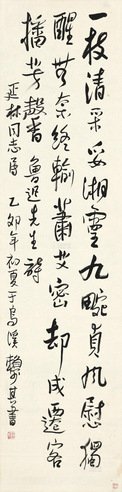 一枝清采妥湘靈九畹貞風慰獨
醒無奈終輸蕭艾密却成遷客
播芳馨 魯迅先生詩
延林同志屬 乙卯年初夏于烏溪 賴少其書